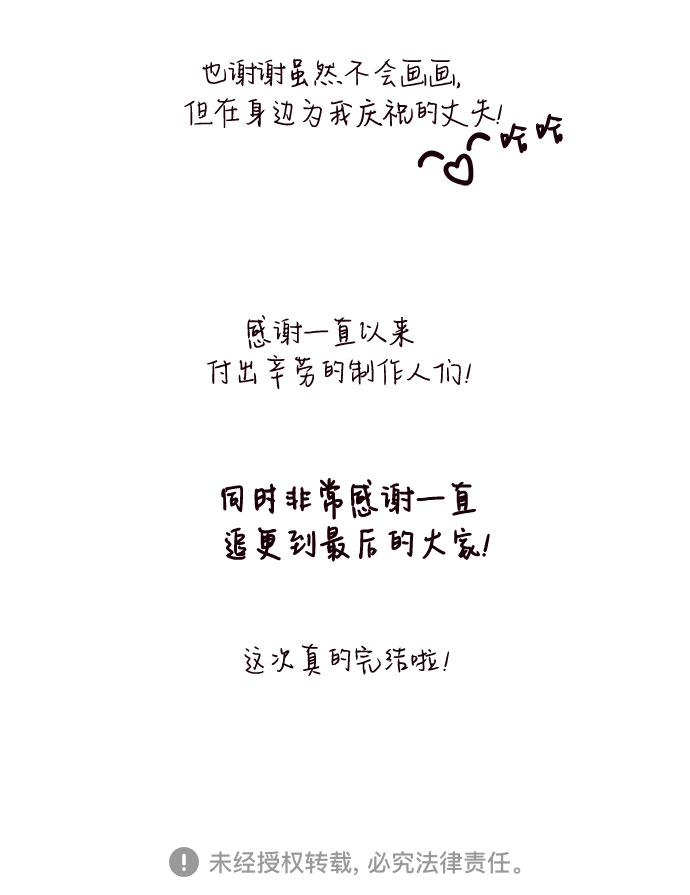 也谢谢虽然不会画画,
但在身边为我庆祝的丈夫!
哈哈
感谢一直以来
付出辛劳的制作人们!
同时非常感谢一直
追更到最后的大家!
这次真的完结啦!
未经授权转载, 必究法律责任。